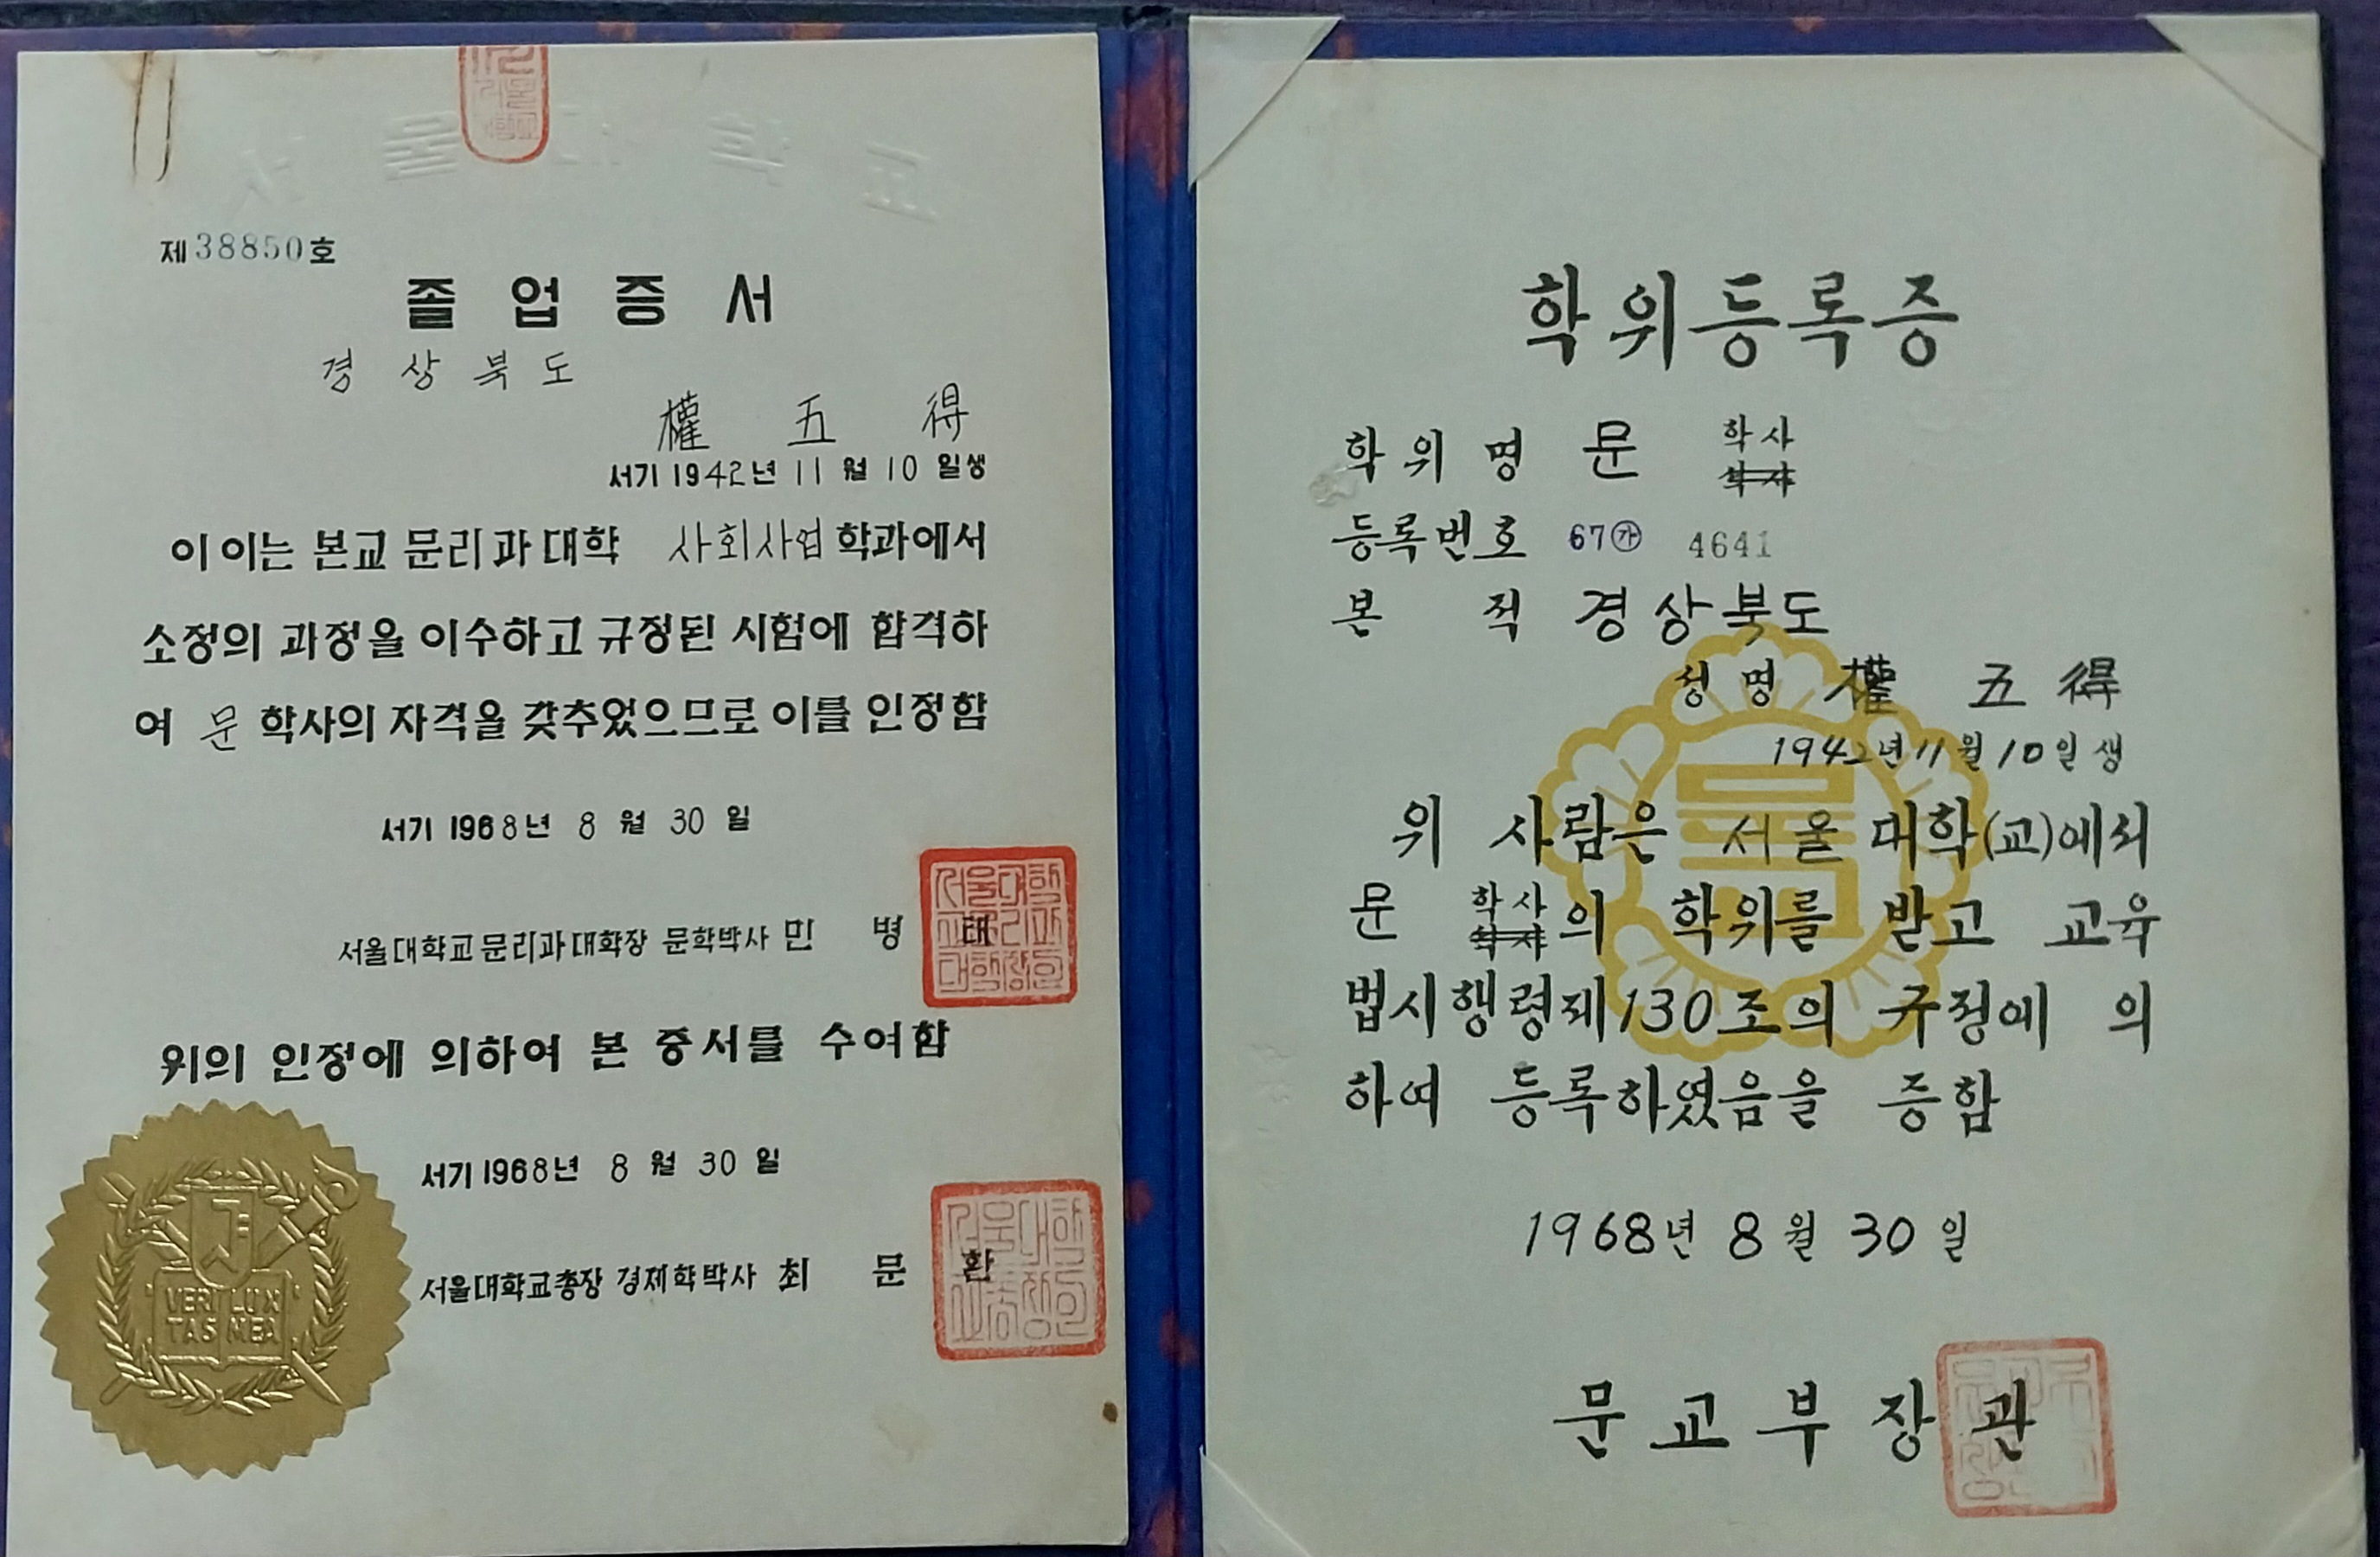 제38850호
졸업증서
경상북도
權五得
서기 1942년 11월 10일생
이 이는 본교 문리과대학 사회사업학과에서
소정의 과정을 이수하고 규정된 시험에 합격하
여 문학사의 자격을 갖추었으므로 이를 인정함
서기 1968년 8월 30일
서울대학교문리과대학장 문학박사 민병태
위의 인정에 의하여 본 증서를 수여함
서기 1968년 8월 30일
서울대학교총장 경제학박사 최문환
VERI LUX
TAS MEA
학위등록증
학위명 문 학사
등록번호 67㉮ 4641
본적 경상북도
성명 權五得
1942년 11월 10일생
위 사람은 서울대학(교)에서
문 학사의 학위를 받고 교육
법시행령제130조의 규정에 의
하여 등록하였음을 증함
1968년 8월 30일
문교부장관